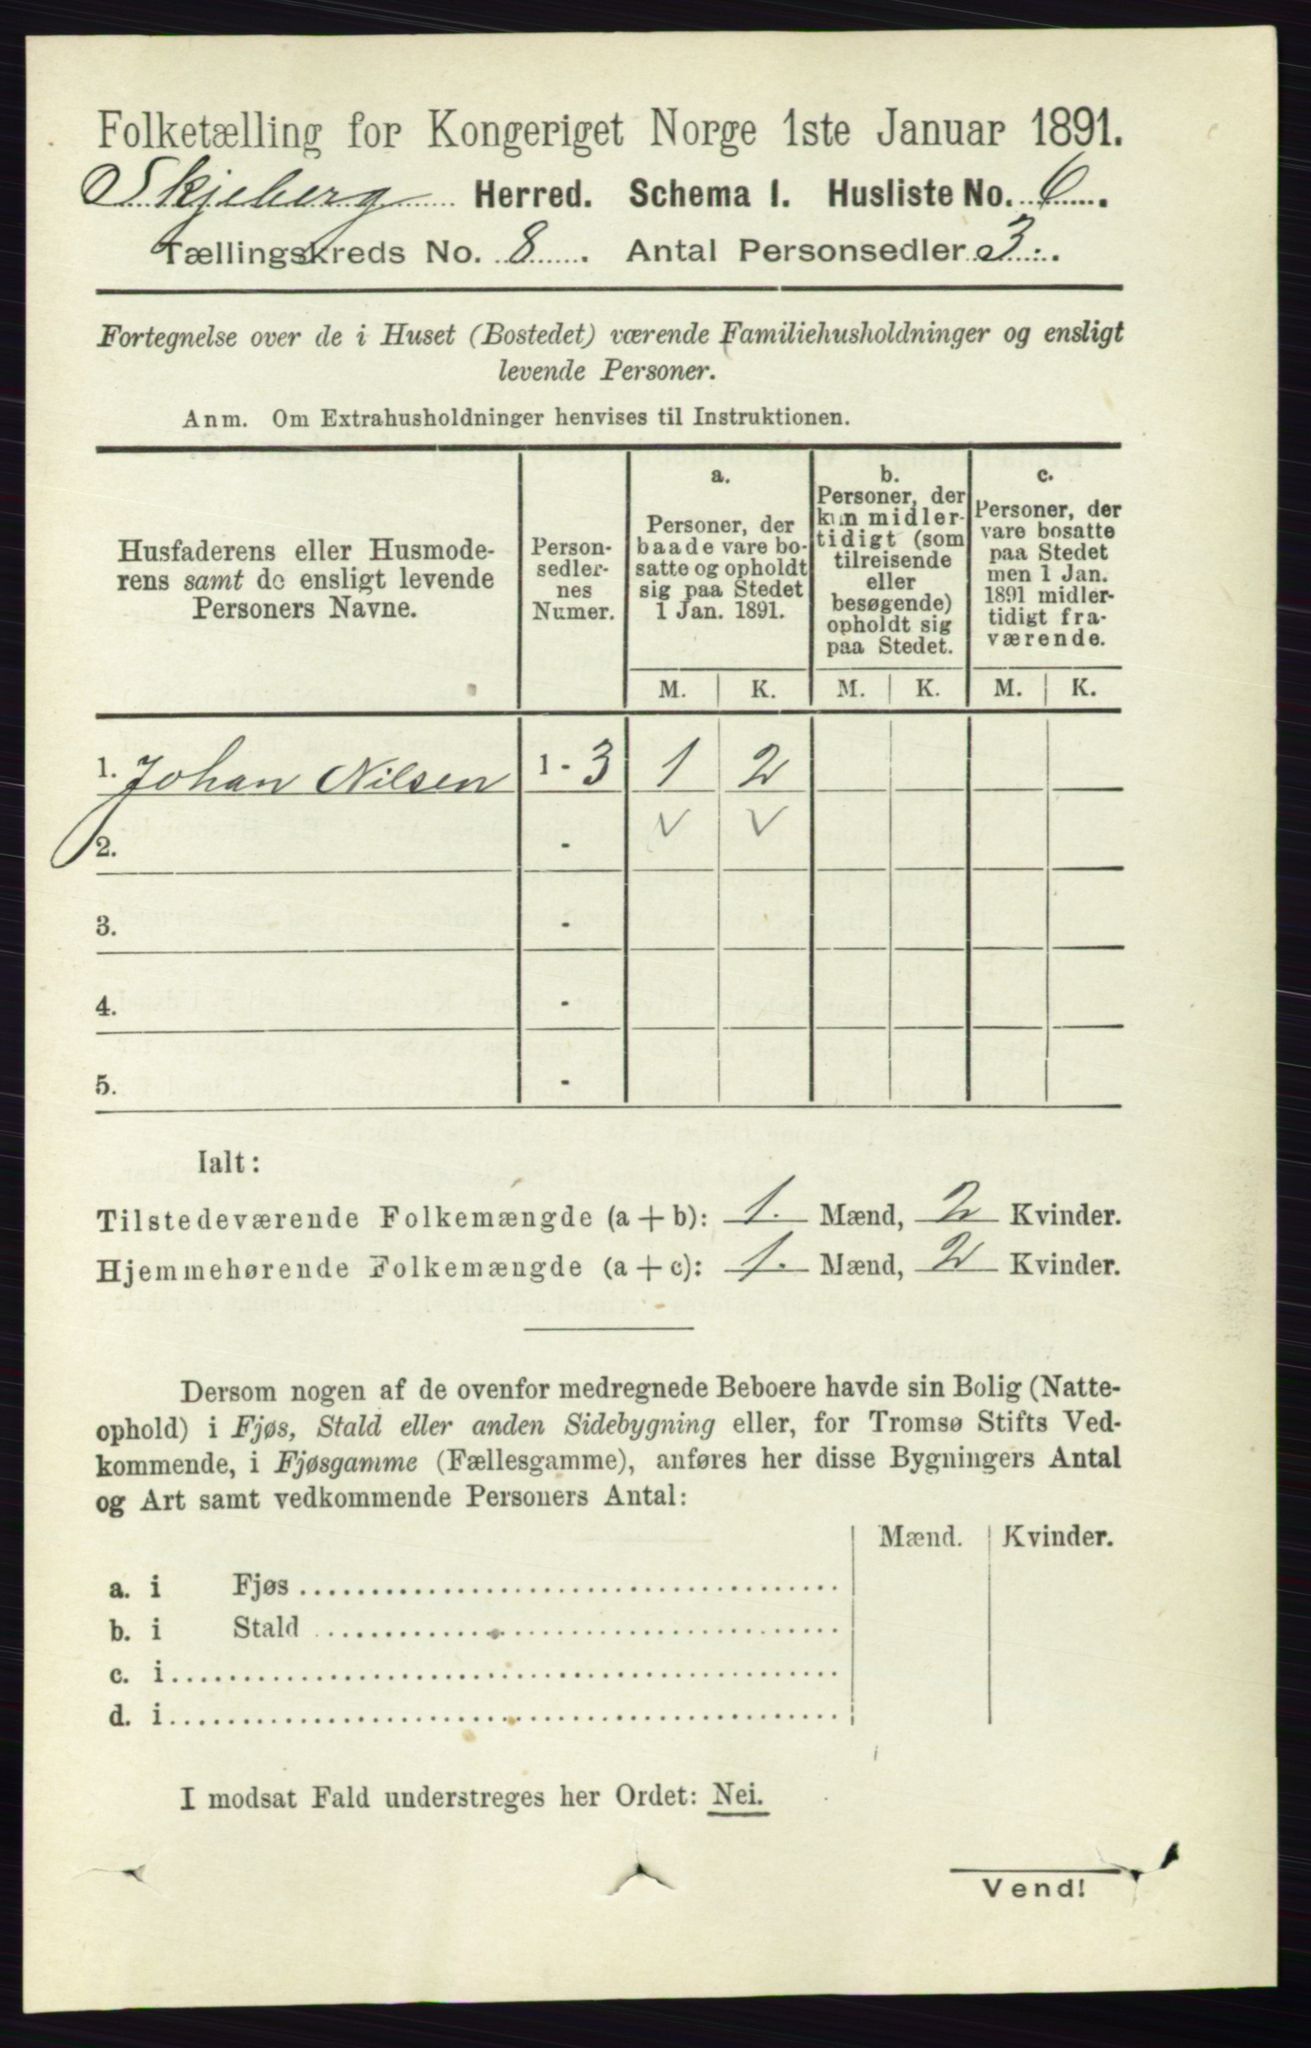 Folketælling for Kongeriget Norge 1ste Januar 1891.
Skjeberg Herred. Schema I. Husliste No. 6.
Tællingskreds No. 8. Antal Personsedler 3.
Fortegnelse over de i Huset (Bostedet) værende Familiehusholdninger og ensligt
levende Personer.
Anm. Om Extrahusholdninger henvises til Instruktionen.
Husfaderens eller Husmode-
rens samt de ensligt levende
Personers Navne.
Person-
sedler-
nes
Numer.
a.
Personer, der
baade vare bo-
satte og opholdt
sig paa Stedet
1 Jan. 1891.
b.
Personer, der
kun midler-
tidigt (som
tilreisende
eller
besøgende)
opholdt sig
paa Stedet.
c.
Personer, der
vare bosatte
paa Stedet
men 1 Jan.
1891 midler-
tidigt fra-
værende.
M. K. M. K. M. K.
1. Johan Nilsen 1 - 3 1 2
2. - V V
3. -
4. -
5. -
Ialt:
Tilstedeværende Folkemængde (a + b): 1. Mænd, 2 Kvinder.
Hjemmehørende Folkemængde (a + c): 1. Mænd, 2 Kvinder.
Dersom nogen af de ovenfor medregnede Beboere havde sin Bolig (Natte-
ophold) i Fjøs, Stald eller anden Sidebygning eller, for Tromsø Stifts Ved-
kommende, i Fjøsgamme (Fællesgamme), anføres her disse Bygningers Antal
og Art samt vedkommende Personers Antal:
Mænd. Kvinder.
a. i Fjøs
b. i Stald
c. i
d. i
I modsat Fald understreges her Ordet: Nei.
Vend!